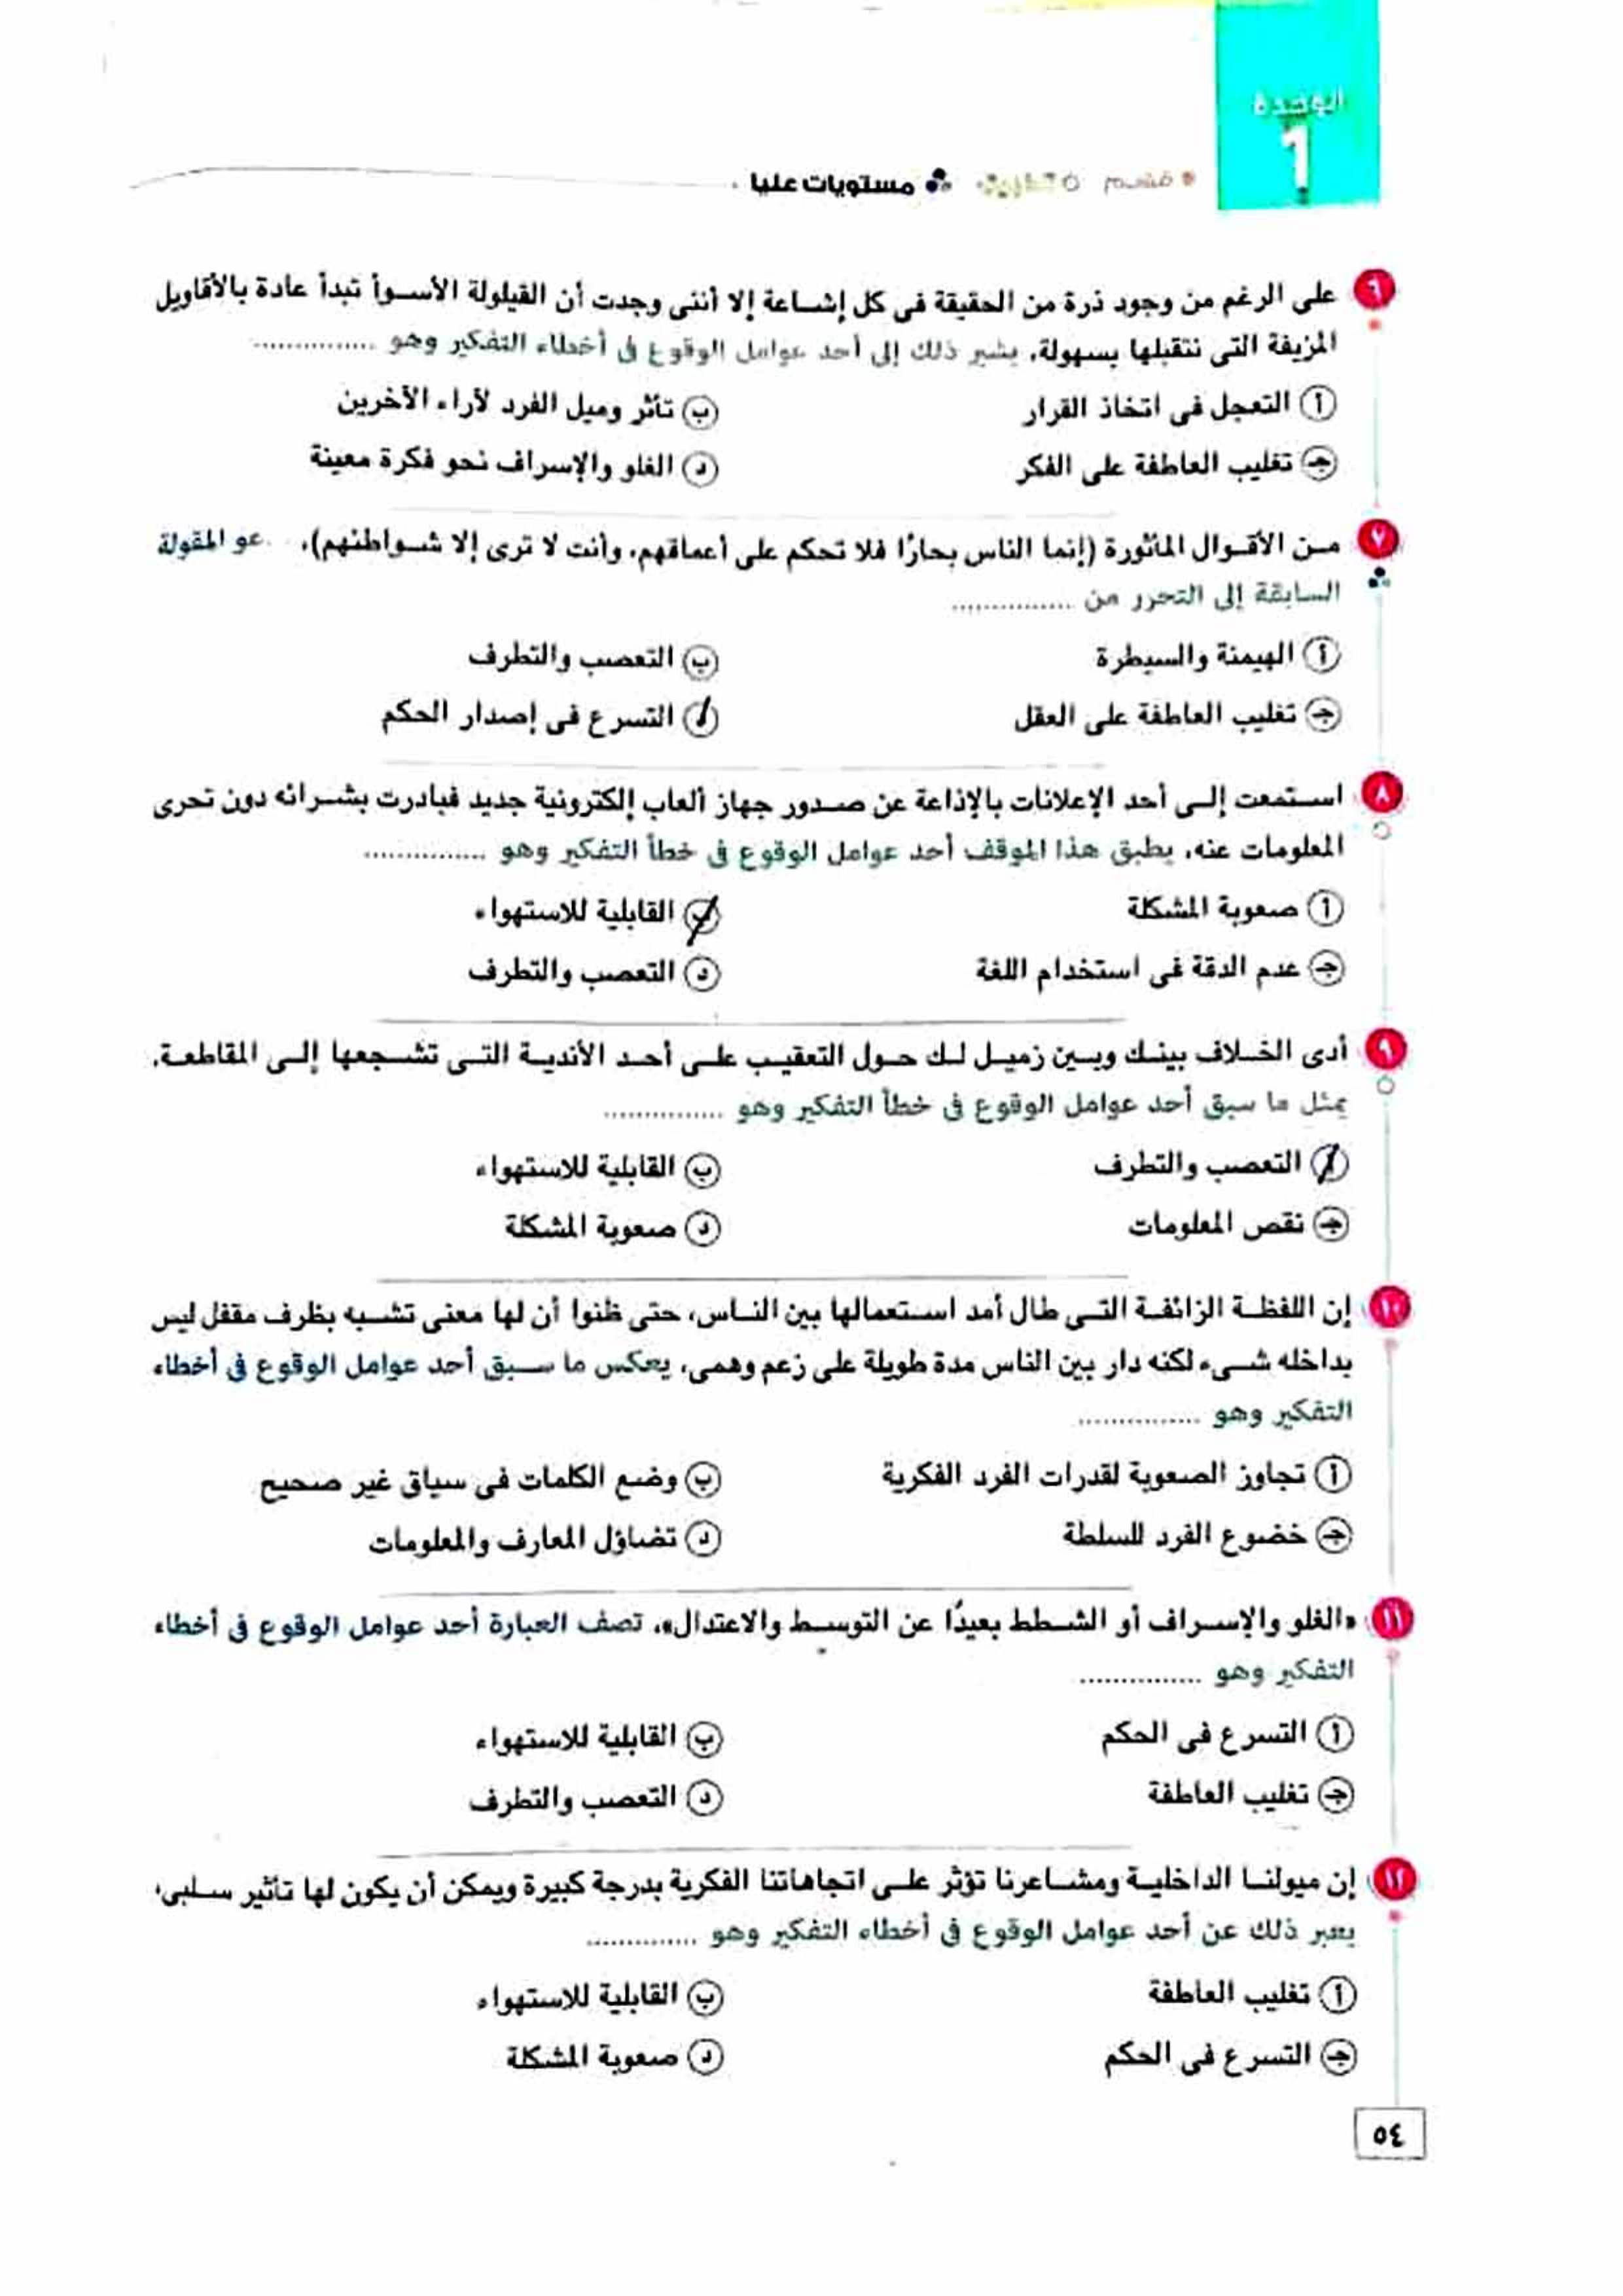 الوحدة
1
• فهم ○ تطبيق مستويات عليا
٦ على الرغم من وجود ذرة من الحقيقة فى كل إشاعة إلا أننى وجدت أن القيلولة الأسوأ تبدأ عادة بالأقاويل
المزيفة التى نتقبلها بسهولة، يشير ذلك إلى أحد عوامل الوقوع فى أخطاء التفكير وهو ..............
أ التعجل فى اتخاذ القرار
ب تأثر وميل الفرد لآراء الآخرين
ج تغليب العاطفة على الفكر
د الغلو والإسراف نحو فكرة معينة
٧ من الأقوال المأثورة (إنما الناس بحارًا فلا تحكم على أعماقهم، وأنت لا ترى إلا شواطئهم)، عو المقولة
السابقة إلى التحرر من ..............
أ الهيمنة والسيطرة
ب التعصب والتطرف
ج تغليب العاطفة على العقل
د التسرع فى إصدار الحكم
٨ استمعت إلى أحد الإعلانات بالإذاعة عن صدور جهاز ألعاب إلكترونية جديد فبادرت بشرائه دون تحرى
المعلومات عنه، يطبق هذا الموقف أحد عوامل الوقوع فى خطأ التفكير وهو ..............
أ صعوبة المشكلة
ب القابلية للاستهواء
ج عدم الدقة فى استخدام اللغة
د التعصب والتطرف
٩ أدى الخلاف بينك وبين زميل لك حول التعقيب على أحد الأندية التى تشجعها إلى المقاطعة.
يمثل ما سبق أحد عوامل الوقوع فى خطأ التفكير وهو ..............
أ التعصب والتطرف
ب القابلية للاستهواء
ج نقص المعلومات
د صعوبة المشكلة
١٠ إن اللفظة الزائفة التى طال أمد استعمالها بين الناس، حتى ظنوا أن لها معنى تشبه بظرف مقفل ليس
بداخله شىء لكنه دار بين الناس مدة طويلة على زعم وهمى، يعكس ما سبق أحد عوامل الوقوع فى أخطاء
التفكير وهو ..............
أ تجاوز الصعوبة لقدرات الفرد الفكرية
ب وضع الكلمات فى سياق غير صحيح
ج خضوع الفرد للسلطة
د تضاؤل المعارف والمعلومات
١١ «الغلو والإسراف أو الشطط بعيدًا عن التوسط والاعتدال»، تصف العبارة أحد عوامل الوقوع فى أخطاء
التفكير وهو ..............
أ التسرع فى الحكم
ب القابلية للاستهواء
ج تغليب العاطفة
د التعصب والتطرف
١٢ إن ميولنا الداخلية ومشاعرنا تؤثر على اتجاهاتنا الفكرية بدرجة كبيرة ويمكن أن يكون لها تأثير سلبى،
يعبر ذلك عن أحد عوامل الوقوع فى أخطاء التفكير وهو ..............
أ تغليب العاطفة
ب القابلية للاستهواء
ج التسرع فى الحكم
د صعوبة المشكلة
٥٤